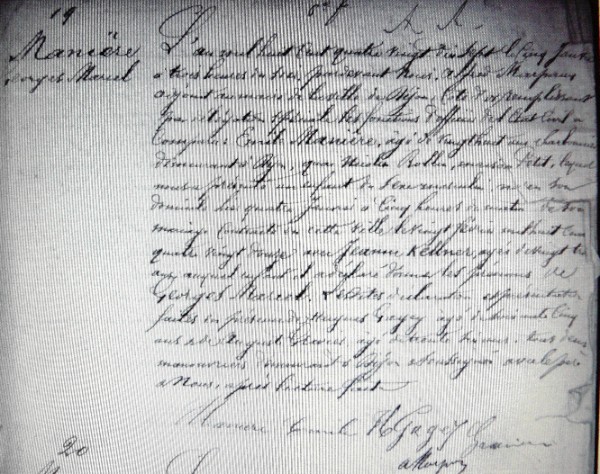 19
Manière
Georges Marcel
L'an mil huit cent quatre vingt dix sept le cinq Janvier
à trois heures du soir, pardevant Nous, Alfred Marpaux
adjoint au maire de la ville de Dijon, Côte d'or remplissant
par délégation spéciale les fonctions d'officier de l'Etat Civil a
comparu: Emile Manière, âgé de vingt huit ans, charbonnier
demeurant à Dijon, quai Nicolas Rollin, maison Petit, lequel
nous a présenté un enfant du sexe masculin né en son
domicile le quatre Janvier à Cinq heures du matin de son
mariage contracté en cette ville le vingt février mil huit cent
quatre vingt douze avec Jeanne Kellner, âgée de vingt
ans auquel enfant il a déclaré donner les prénoms de
Georges Marcel. Lesdites déclaration et présentation
faites en présence de Hugues Gagey âgé de soixante cinq
ans et de August âgé de trente ans, tous deux
manouvriers demeurant à Dijon et soussignés avec le père
et Nous, après lecture faite
Manière Emile H Gagey
A Marpaux
20